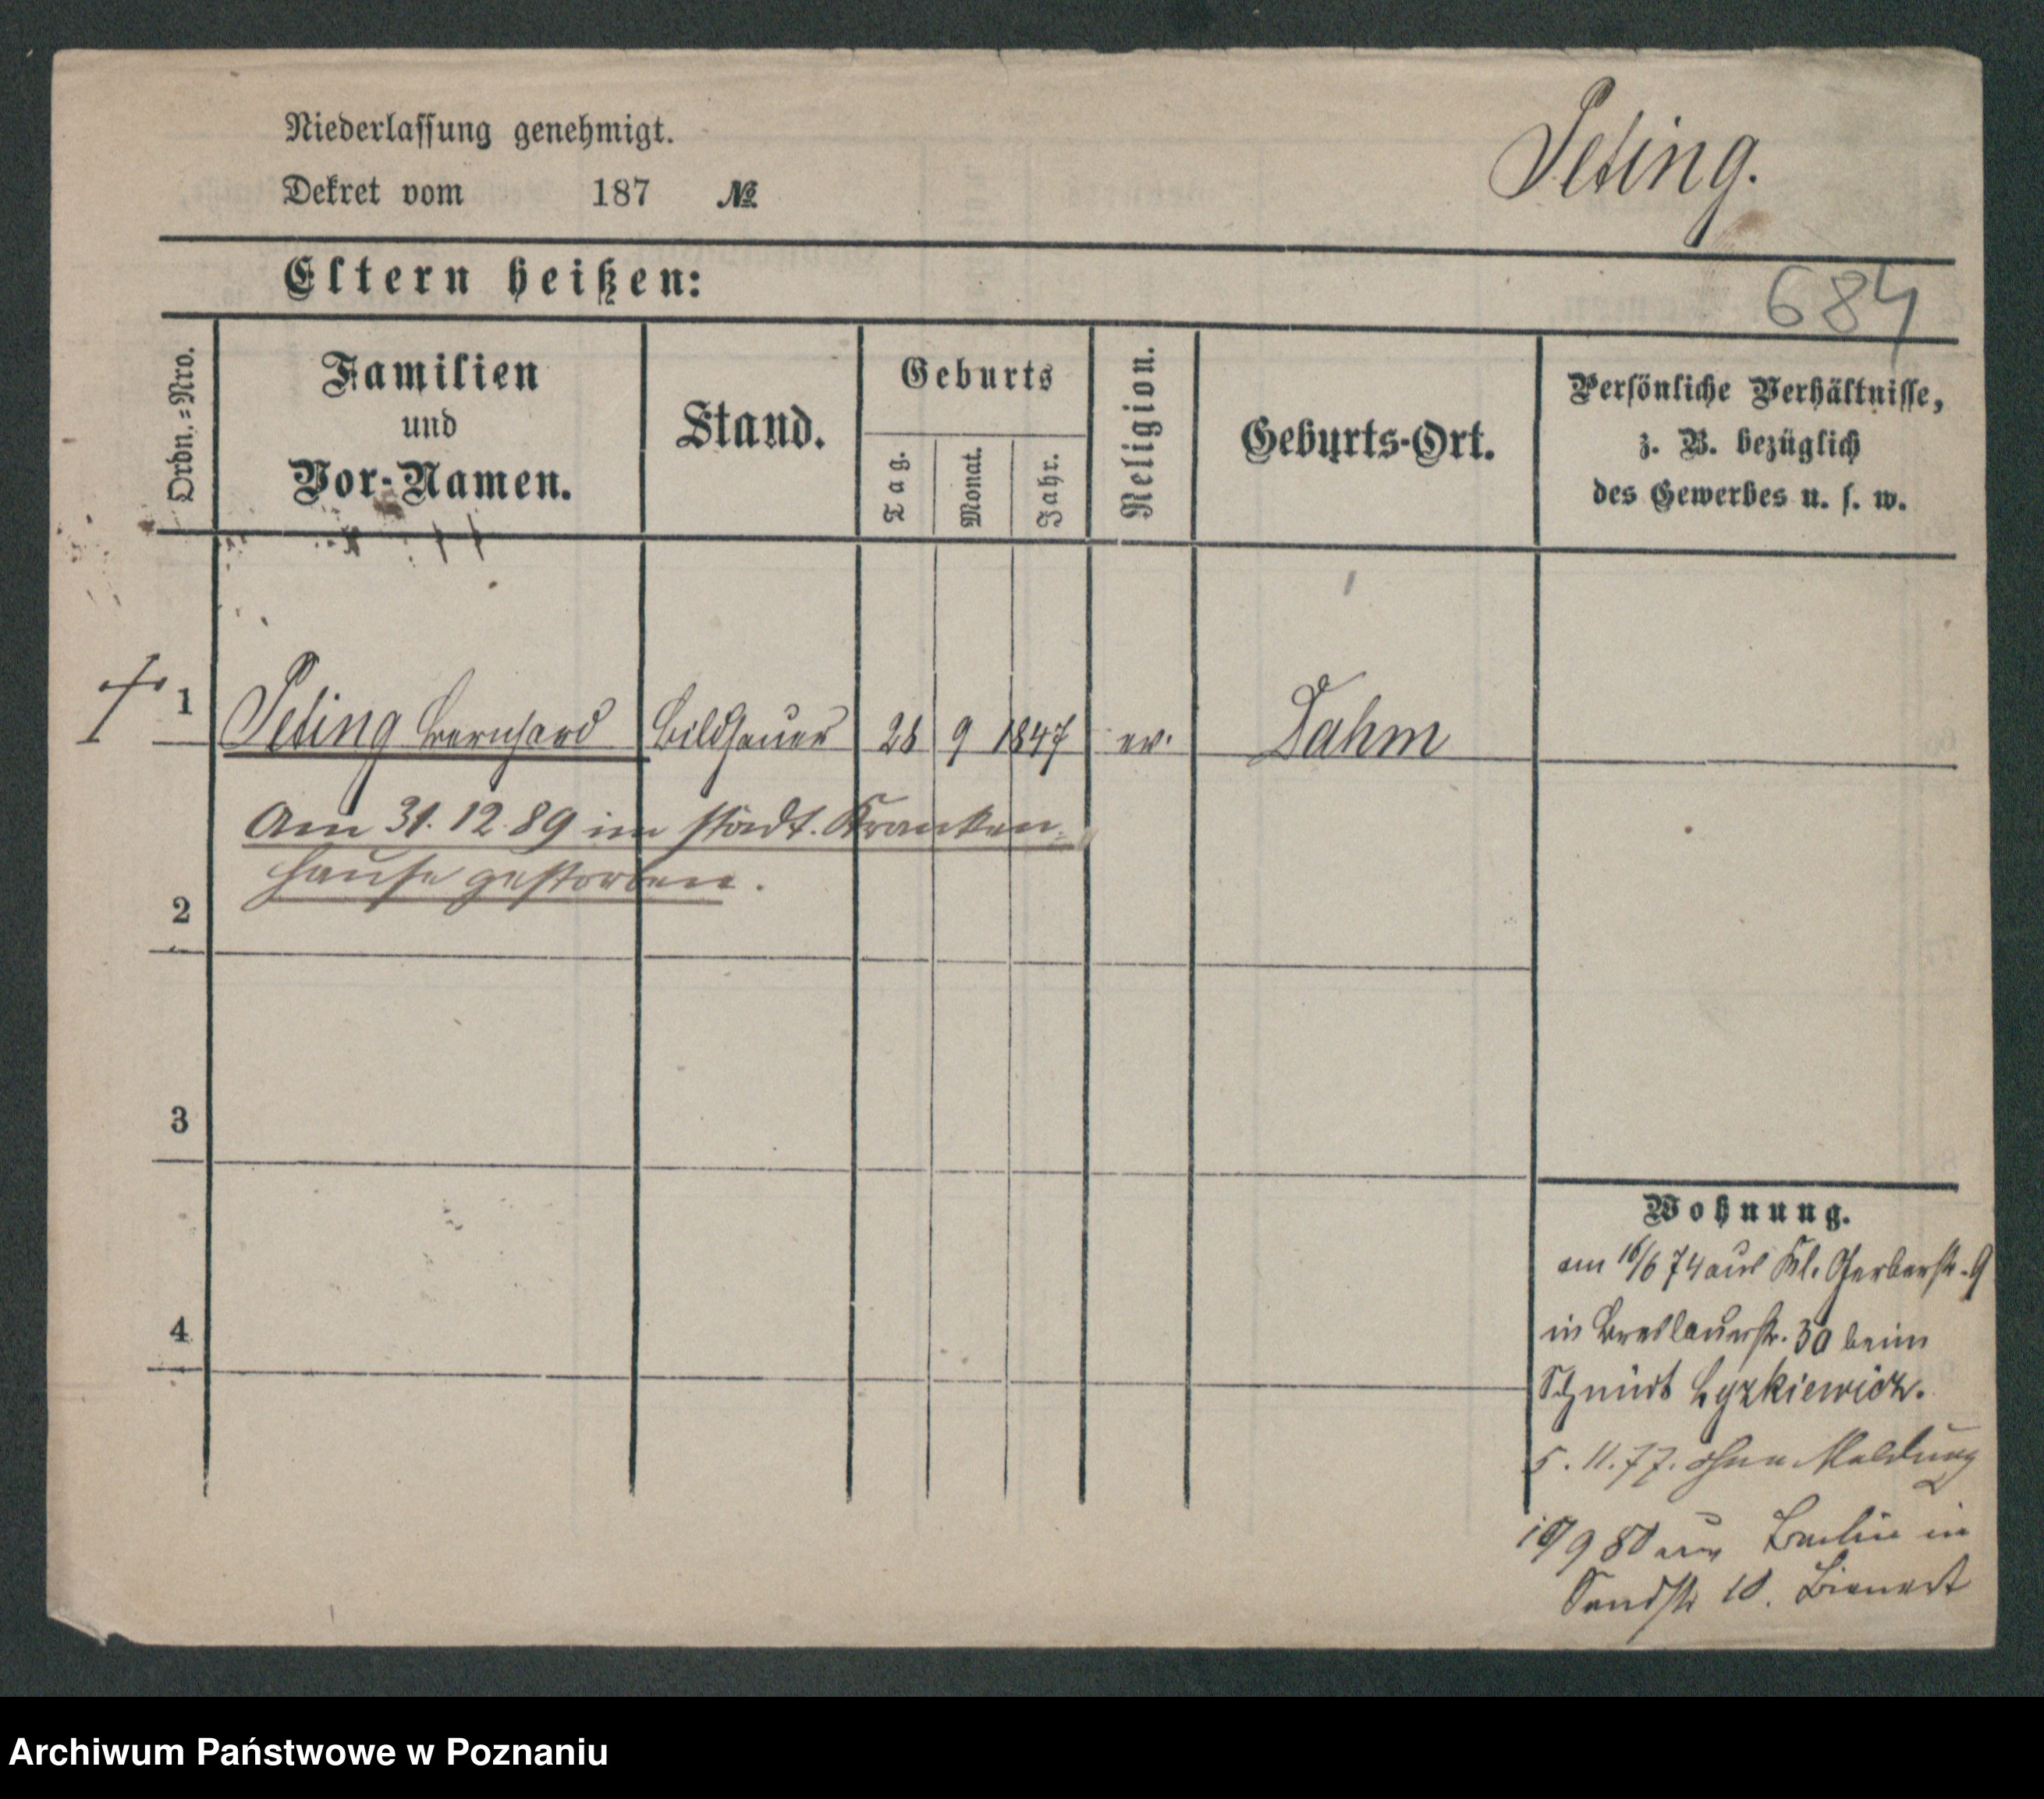 Niederlassung genehmigt.
Dekret vom 187 №
Peting.
Eltern heißen:
684
Ordn.=Nro.
Familien und Vor-Namen.
Stand.
Geburts
Tag.
Monat.
Jahr.
Religion.
Geburts-Ort.
Persönliche Verhältnisse,
z. B. bezüglich
des Gewerbes u. s. w.
† 1 Peting Bernhard Bildhauer 28 9 1847 ev. Dahm
Am 31.12.89 im städt. Kranken-
hause gestorben.
2
3
4
Wohnung.
am 16/6 74 aus Kl. Gerberstr. 9
in Breslauerstr. 30 beim
Lyzkiewicz.
5.11.77. ohne Meldung
9 80 aus Berlin in
Sandstr 10. Bienert
Archiwum Państwowe w Poznaniu